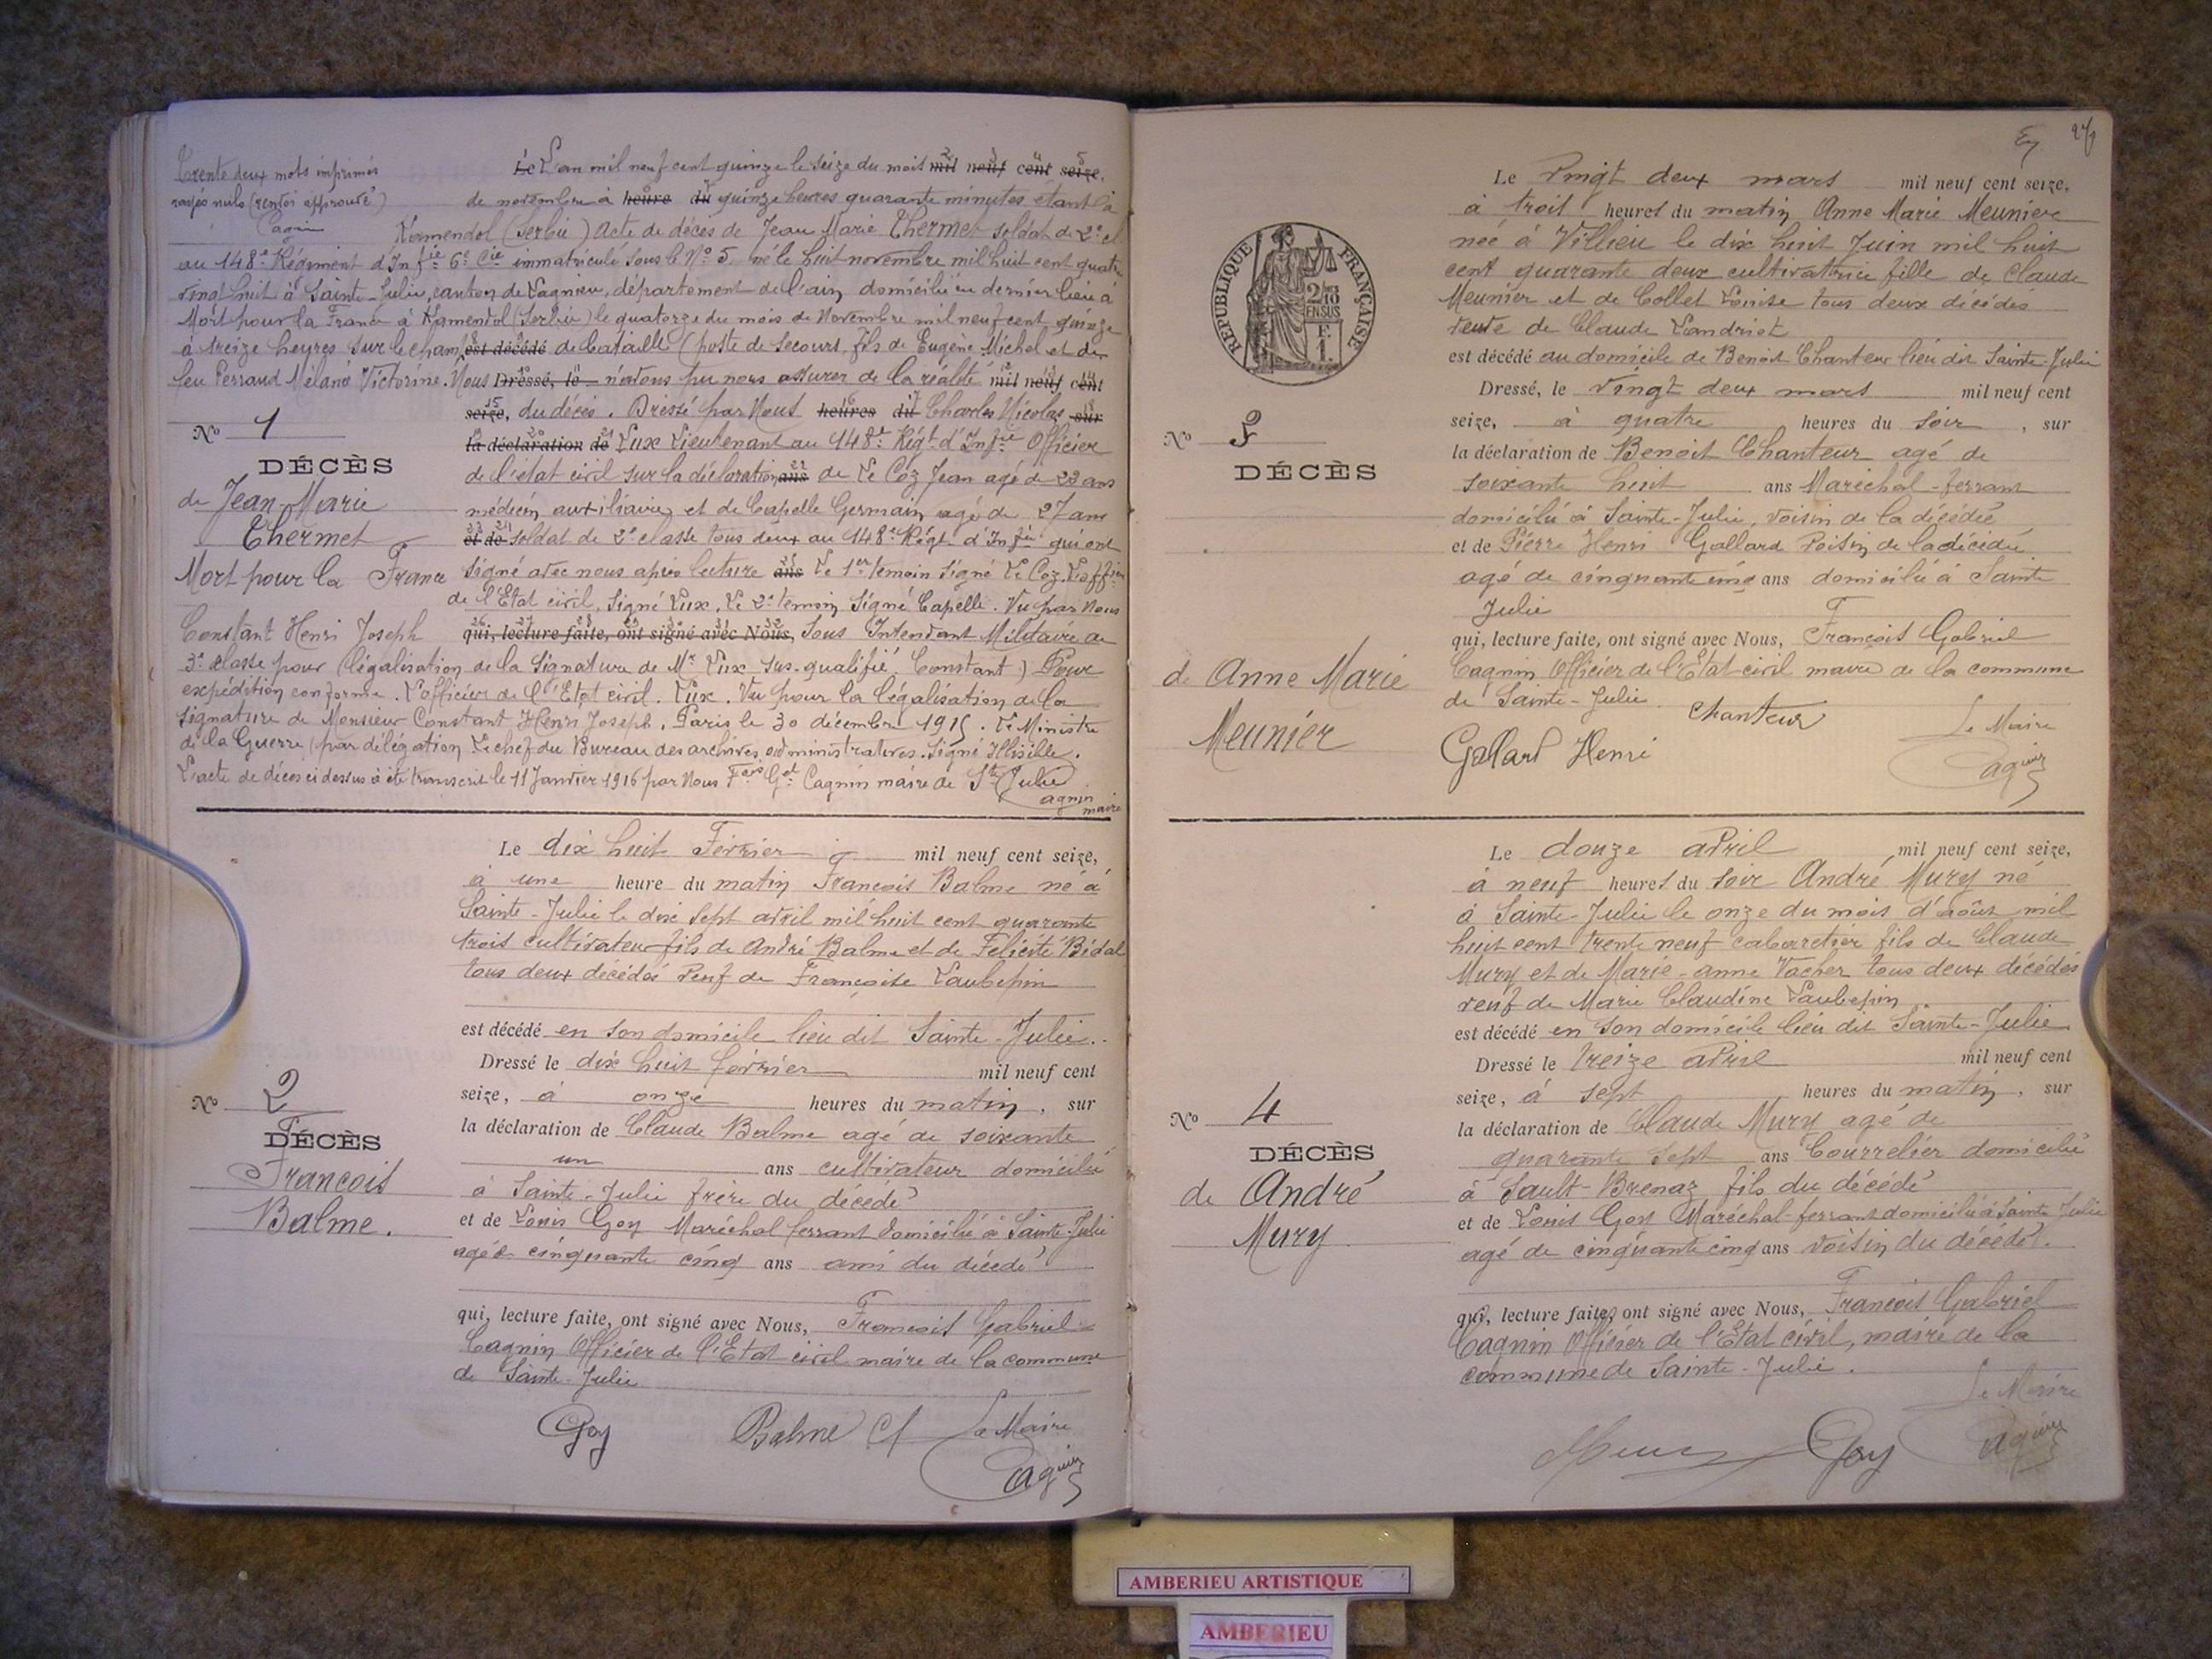 Trente deux mots imprimés
rayés nuls (renvoi approuvé)
Cagnin
Le L'an mil neuf cent quinze le seize du mois mil neuf cent seize,
de novembre à heure du quinze heures quarante minutes étant à
Kamendol (Serbie) acte de décès de Jean Marie Thermet soldat de 2e cl
au 148e Régiment d'Infie 6e Cie immatriculé sous le No 5 né le huit novembre mil huit cent quatre
vingt huit à Sainte-Julie, canton de Lagnieu, département de l'ain domicilié en dernier lieu à
Mort pour la France à Kamendol (Serbie) le quatorze du mois de Novembre mil neuf cent quinze
à treize heures sur le champ est décédé de bataille (poste de secours, fils de Eugène Michel et de
feu Perraud Mélanie Victorine. Nous Dressé, le n'avons pu nous assurer de la réalité mil neuf cent
seize, du décès. Dressé par Nous heures du Charles Nicolas sur
la déclaration de Lux Lieutenant au 148e Régt d'Infie Officier
de l'état civil sur la déclaration ans de Le Coz Jean agé de 23 ans
médecin auxiliaire et de Capelle Germain agé de 27 ans
et de soldat de 2e classe tous deux au 148e Régt d'Infie qui ont
signé avec nous après lecture ans Le 1er temoin signé Le Coz. L'officier
de l'Etat civil, signé Lux, Le 2e temoin signé Capelle. Vu par Nous
Constant Henri Joseph qui, lecture faite, ont signé avec Nous, Sous Intendant Militaire de
3e classe pour légalisation de la signature de Mr Lux sus-qualifié. Constant) Pour
expédition conforme. L'officier de l'Etat civil. Lux. Vu pour la légalisation de la
signature de Monsieur Constant Henri Joseph. Paris le 30 décembre 1915. Le Ministre
de la Guerre, par délégation Le chef du Bureau des archives administratives. Signé Illisible.
L'acte de décès ci dessus à été transcrit le 11 Janvier 1916 par Nous Fois Gel Cagnin maire de Ste Julie
Cagnin
maire
No 1
DÉCÈS
de Jean-Marie
Thermet
Mort pour la France
Le dix huit Février mil neuf cent seize,
à une heure du matin François Balme né à
Sainte-Julie le dix sept avril mil huit cent quarante
trois cultivateur fils de André Balme et de Felicité Bidal
tous deux décédés veuf de Françoise Laubepin
est décédé en son domicile lieu dit Sainte-Julie.
Dressé le dix huit février mil neuf cent
seize, à onze heures du matin, sur
la déclaration de Claude Balme agé de soixante
un ans cultivateur domicilié
à Sainte-Julie frère du décédé
et de Louis Goy Maréchal ferrant domicilié à Sainte-Julie
agé de cinquante cinq ans ami du décédé
qui, lecture faite, ont signé avec Nous, François Gabriel
Cagnin Officier de l'Etat civil maire de la commune
de Sainte-Julie
No 2
DÉCÈS
François
Balme.
Goy Balme Cl Le Maire
Cagnin
Le Vingt deux mars mil neuf cent seize,
à trois heures du matin Anne Marie Meuniere
née à Villieu le dix huit Juin mil huit
cent quarante deux cultivatrice fille de Claude
Meunier et de Collet Louise tous deux décédés
veuve de Claude Landriot
est décédé au domicile de Benoit Chanteur lieu dit Sainte-Julie
Dressé, le vingt deux mars mil neuf cent
seize, à quatre heures du soir, sur
la déclaration de Benoit Chanteur agé de
soixante huit ans Maréchal-ferrant
domicilié à Sainte-Julie, voisin de la décédée
et de Pierre Henri Gallard voisin de la décédée
agé de cinquante cinq ans domicilié à Sainte
Julie
qui, lecture faite, ont signé avec Nous, François Gabriel
Cagnin Officier de l'Etat civil maire de la commune
de Sainte-Julie.
REPUBLIQUE FRANÇAISE
2/10 EN SUS
No 3
DÉCÈS
de Anne Marie
Meunier
Chanteur
Gallard Henri
Le Maire
Cagnin
Le douze avril mil neuf cent seize,
à neuf heures du soir André Mury né
à Sainte-Julie le onze du mois d'août mil
huit cent trente neuf cabaretier fils de Claude
Mury et de Marie-anne Vacher tous deux décédés
veuf de Marie Claudine Laubepin
est décédé en son domicile lieu dit Sainte-Julie
Dressé le treize avril mil neuf cent
seize, à sept heures du matin, sur
la déclaration de Claude Mury agé de
quarante sept ans Bourrelier domicilié
à Sault-Brenaz fils du décédé
et de Louis Goy Maréchal-ferrant domicilié à Sainte Julie
agé de cinquante cinq ans voisin du décédé.
qui, lecture faite, ont signé avec Nous, François Gabriel
Cagnin Officier de l'Etat civil, maire de la
commune de Sainte-Julie.
No 4
DÉCÈS
de André
Mury
Le Maire
Mury Goy Cagnin
AMBERIEU ARTISTIQUE
AMBERIEU